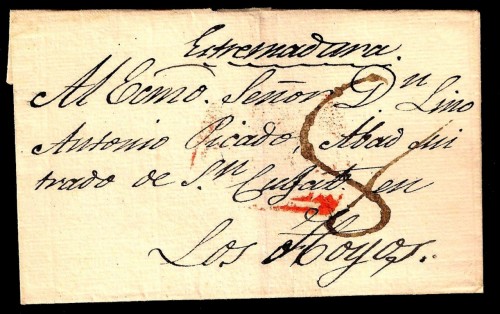 Extremadura.
Al Ecmo. Señor Dn Lino
Antonio Picado, Abad Mi
trado de Sn Cugat. en
Los Hoyos.
8